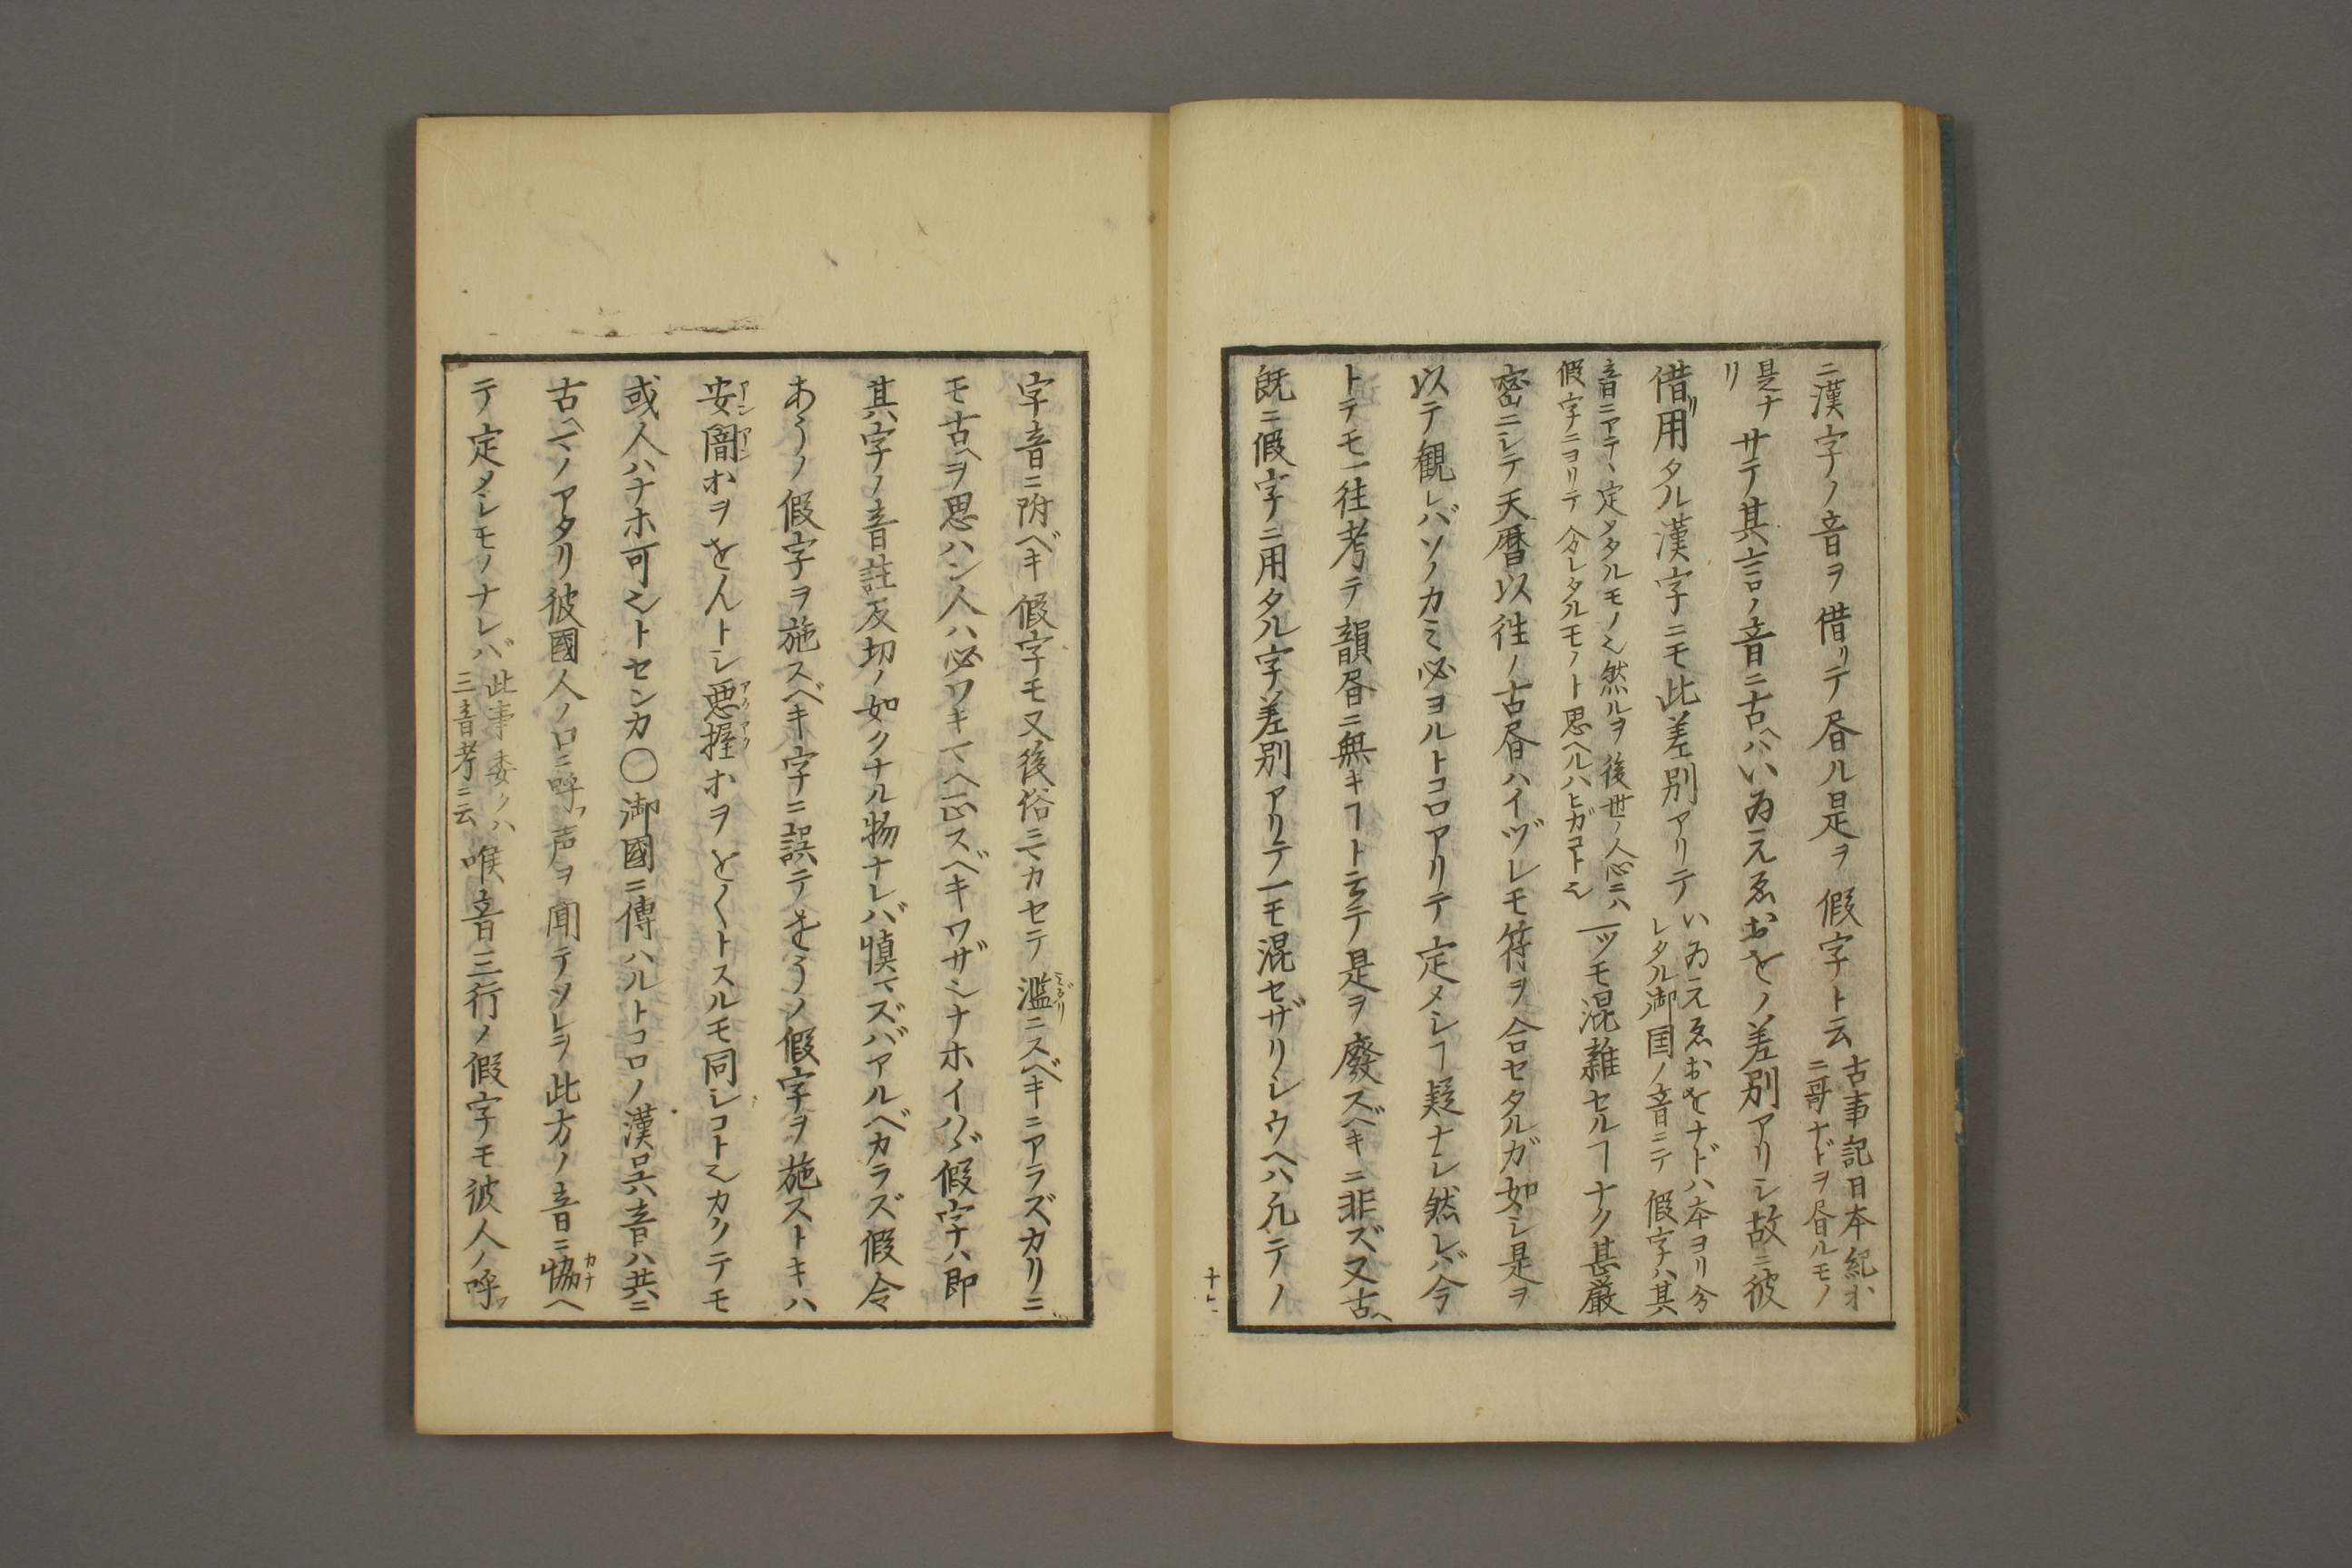 ニ漢字ノ音ヲ借リテ書ル是ヲ假字ト云
古事記日本紀ホ
ニ哥ナドヲ書ルモノ
是ナ
リ
サテ其言ノ音ニ古ヘハいゐえゑおをノ差別アリシ故ニ彼
借リ用タル漢字ニモ此差別アリテ
いゐえゑおをナドハ本ヨリ分
レタル御国ノ音ニテ假字ハ其
音ニアテヽ定メタルモノ也然ルヲ後世ノ人心ニハ
假字ニヨリテ分レタルモノト思ヘルハヒガコト也
一ツモ混雜セルヿナク甚嚴
密ニシテ天暦以往ノ古書ハイヅレモ符ヲ合セタルガ如シ是ヲ
以テ観レバソノカミ必ヨルトコロアリテ定メシヿ疑ナシ然レバ今
トテモ一往考テ韻書ニ無キヿト云テ是ヲ廢スベキニ非ズ又古ヘ
既ニ假字ニ用タル字差別アリテ一モ混セザリシウヘハ凡テノ
字音ニ附ベキ假字モ又後俗ニマカセテ濫ミダリニスベキニアラズカリニ
モ古ヘヲ思ハン人ハ必ワキマヘ正スベキワザ也ナホイハヾ假字ハ即
其字ノ音註反切ノ如クナル物ナレバ愼マズバアルベカラズ假令
あうノ假字ヲ施スベキ字ニ誤テをうノ假字ヲ施ストキハ
安アン闇アンホヲをんトシ惡アク握アクホヲをくトスルモ同シコト也カクテモ
或人ハナホ可也トセンカ〇御國ニ傳ハルトコロノ漢呉音ハ共ニ
古ヘマノアタリ彼國人ノ口ニ呼フ声ヲ聞テソレヲ此方ノ音ニ協カナヘ
テ定メシモノナレバ
此事委クハ
三音考ニ云
喉音三行ノ假字モ彼人ノ呼フ